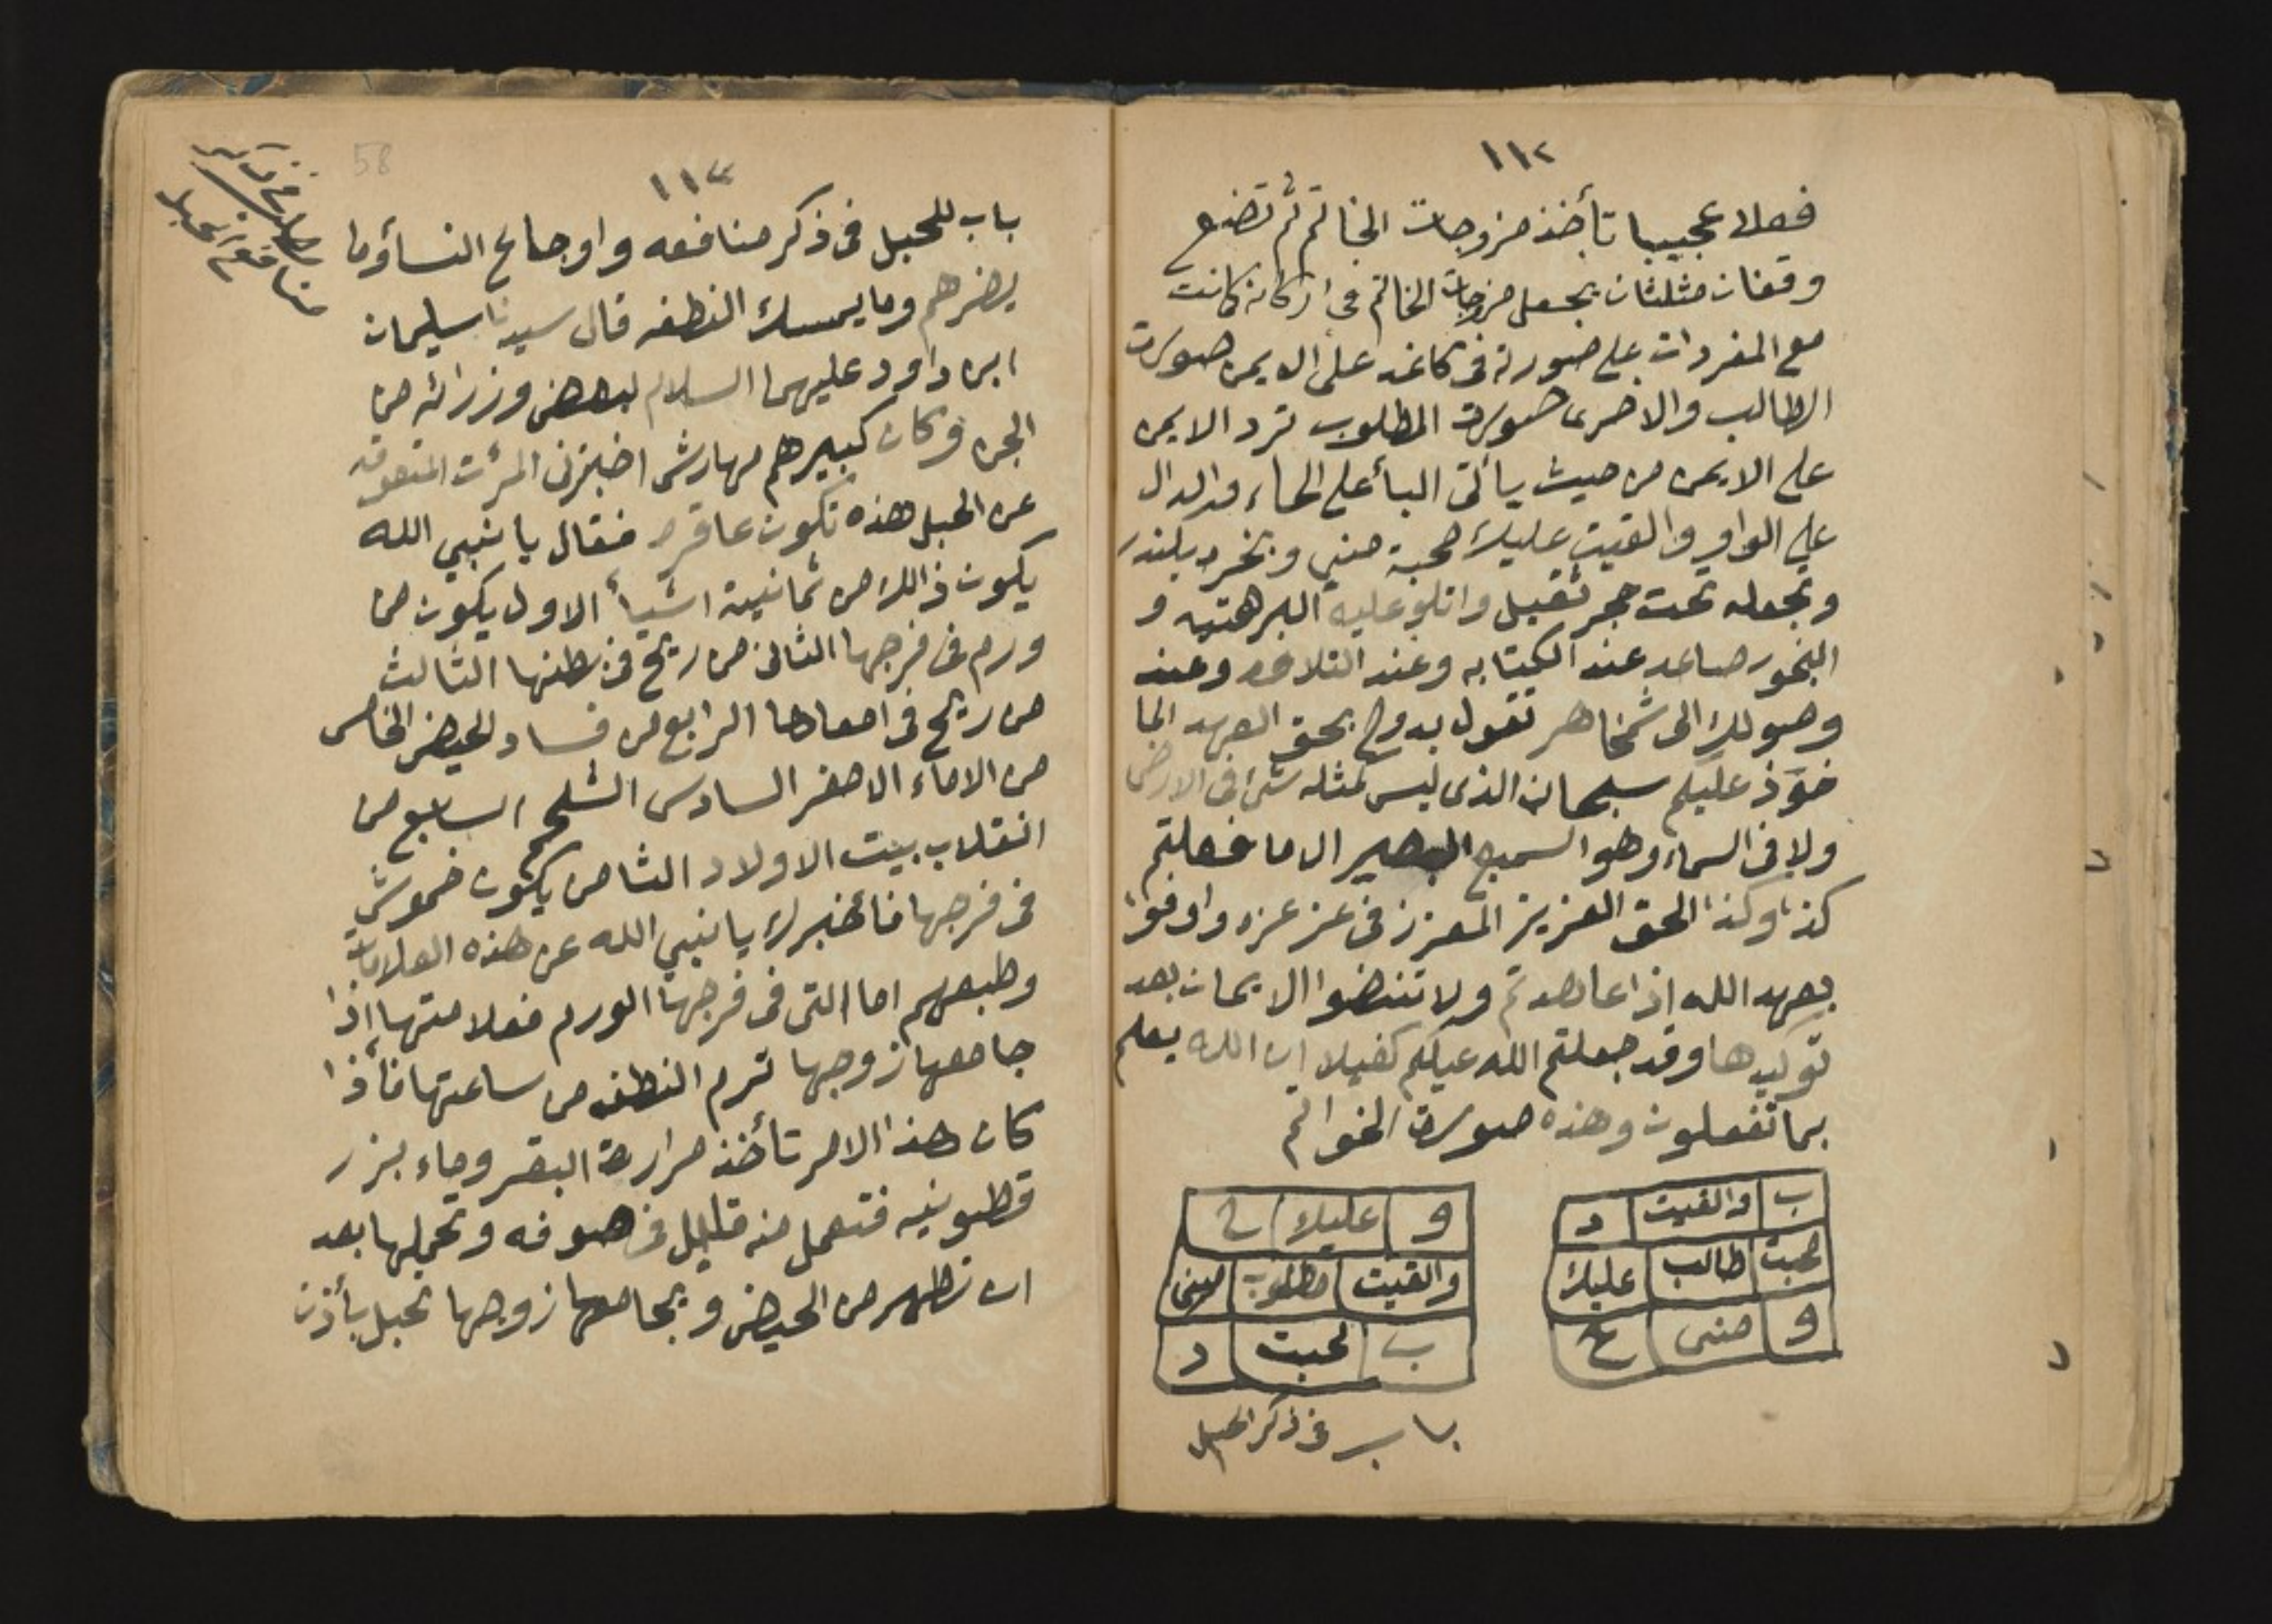 ١١٢
فعلا عجيبا تأخذ مزوجات الخاتم ثم تضع
وقفان مثلثان بجعل مزوجات الخاتم فى اركانه كانت
مع المفردات على صورته فى كاغد على الايمن صورت
الطالب والاخرى صورت المطلوب ترد الايمن
على الايمن من حيث يأتى البأ على الحاء والدال
على الواو والقيت عليك محبة منى وبخره بكندر
وتجعله تحت حجر ثقيل واتلو عليه البرهتيه و
البخور صاعد عند الكتابه وعند التلاوه وعند
وصولك الى شمخاهر تقول بدوح بحق العهد الما
خوذ عليكم سبحان الذى ليس كمثله شئ فى الارض
ولا فى السماء وهو السميع البصير الا ما فعلتم
كذا وكذا الحق العزيز المعزز فى عز عزه واوفوا
بعهد الله اذا عاهدتم ولا تنقضوا الايمان بعد
توكيدها وقد جعلتم الله عليكم كفيلا ان الله يعلم
بما تفعلون وهذه صورت الخواتم
ب والقيت د
محبت طالب عليك
و منى ح
و عليك ح
والقيت مطلوب منى
ب محبت د
باب فى ذكر الحبل
58
١١٣
منافع الحبل
باب للحبل فى ذكر منافعه واوجاع النسأوما
يضرهم وما يمسك النطفه قال سيدنا سليمان
ابن داود عليهما السلام لبعض وزرائه من
الجن وكان كبيرهم مهارش اخبرنى المرأت المتعوقه
عن الحبل هذه تكون عاقره فقال يا نبي الله
يكون ذالك من ثمانية اشيأ الاول يكون من
ورم فى فرجها الثانى من ريح فى بطنها الثالث
من ريح فى امعادها الرابع من فساد الحيض الخامس
من الاماء الاصفر السادس الشلحم السابع من
انقلاب بيت الاولاد الثامن يكون خموش
فى فرجها فأخبرك يا نبي الله عن هذه العلامات
وطبعهم اما التى فى فرجها الورم فعلامتها اذا
جامعها زوجها ترم النطفه من ساعتها فأذا
كان هذا الامر تأخذ مرارة البقر وماء بزر
قطونيه فتعمل منه قليل فى صوفه وتحملها بعد
ان تطهر من الحيض ويجامعها زوجها تحبل بأذن